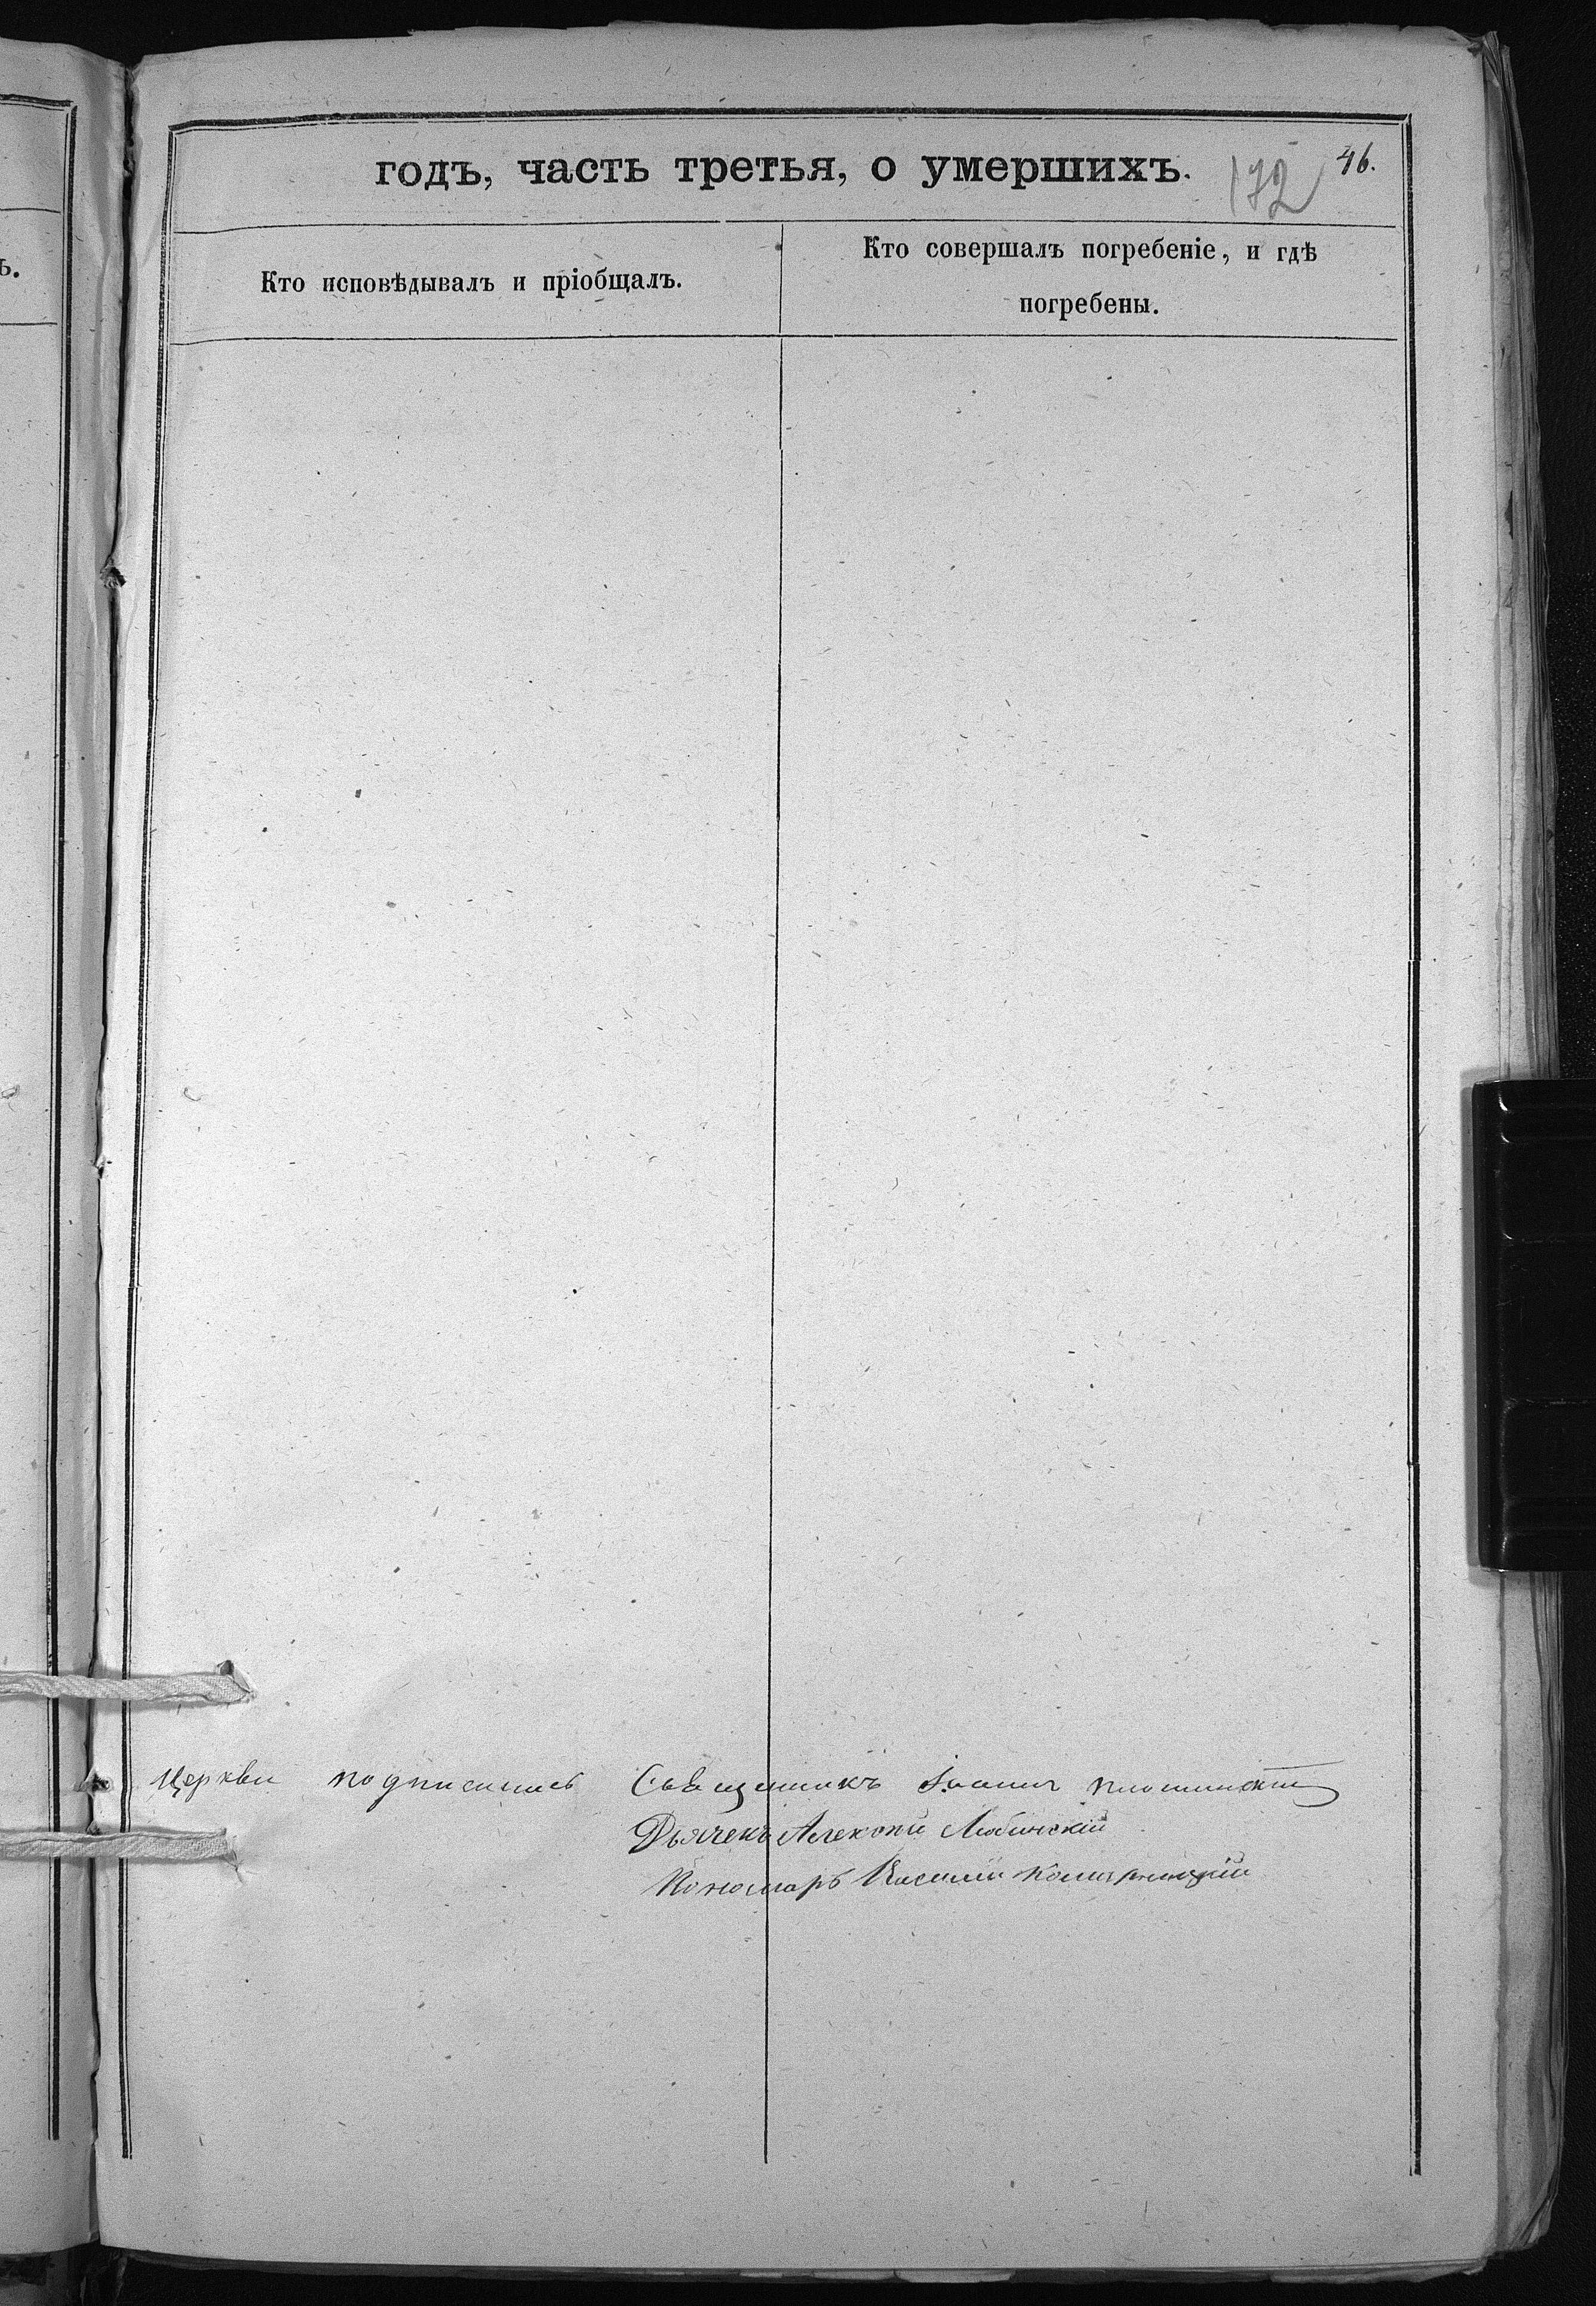 ъ.
годъ, часть третья, о умершихъ.
172
46.
Кто исповѣдывалъ и пріобщалъ.
Кто совершалъ погребеніе, и гдѣ
погребены.
Церкви подписались Священникъ Іоаннъ
Дьячекъ Алексѣй Любинскій
Пономарь Василій